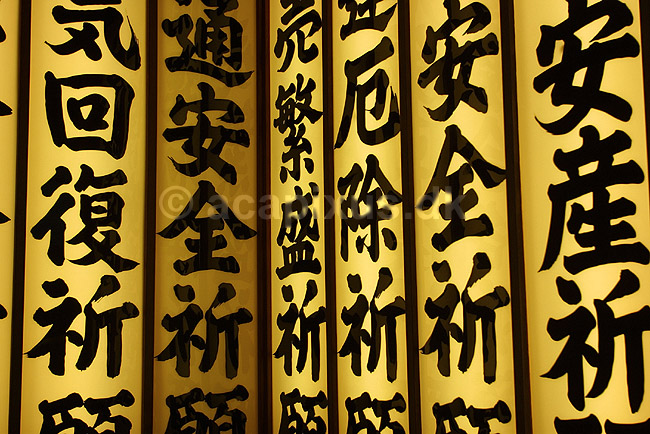 安産祈願
安全祈願
厄除祈願
売繁盛祈願
通安全祈願
気回復祈願
© acapixus.dk